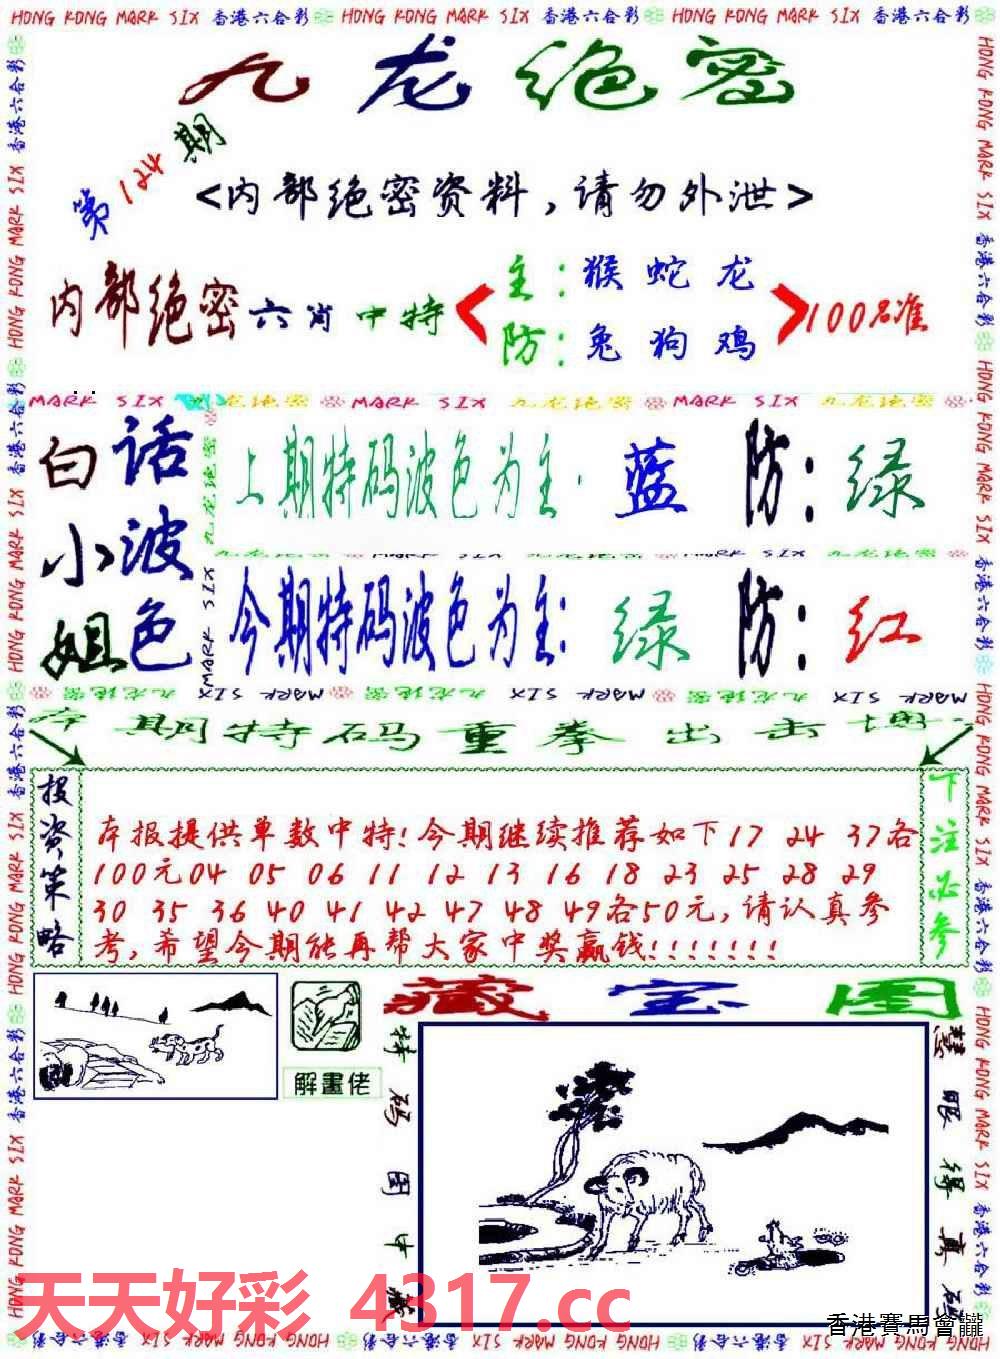 HONG KONG MARK SIX 香港六合彩 HONG KONG MARK SIX 香港六合彩 HONG KONG MARK SIX 香港六合彩
九龙绝密
第124期
<内部绝密资料,请勿外泄>
内部绝密六肖中特
主:猴蛇龙
防:兔狗鸡
100%准
MARK SIX 九龙绝密 MARK SIX 九龙绝密 MARK SIX 九龙绝密
白小姐
话波色
上期特码波色为主·蓝 防:绿
九龙绝密 MARK SIX 九龙绝密 MARK SIX 九龙绝密
今期特码波色为主:绿 防:红
九龙绝密 MARK SIX 九龙绝密 MARK SIX 九龙绝密 MARK SIX
本期特码重拳出击
投资策略
本报提供单数中特!今期继续推荐如下17 24 37各
100元04 05 06 11 12 13 16 18 23 25 28 29
30 35 36 40 41 42 47 48 49各50元,请认真参
考,希望今期能再帮大家中奖赢钱!!!!!!!
下注必参
藏宝图
解畫佬
特码图中藏
慧眼得真码
天天好彩 4317.cc
香港賽馬會
HONG KONG MARK SIX 香港六合彩 HONG KONG MARK SIX 香港六合彩 HONG KONG MARK SIX